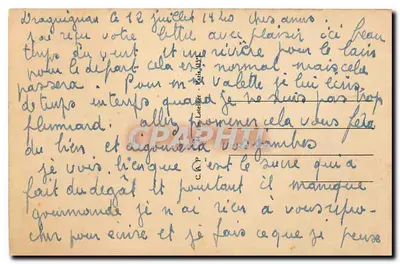 Draguignan le 12 juillet 1920 chers amis.
j'ai reçu votre lettre avec plaisir ici beau
temps du vent et une rivière pour le bain
pour le départ cela est normal mais cela
passera. Pour Mr Valette je lui écris
de temps en temps quand je ne suis pas trop
flemmard. allez promener cela vous fera
du bien et dégourdira vos jambes
je vois bien que c'est le sucre qui a
fait du dégat et pourtant il manque
gourmande je n'ai rien à vous repro-
cher pour écrire et je fais ce que je peux
CPAPHIL
C. A. P.